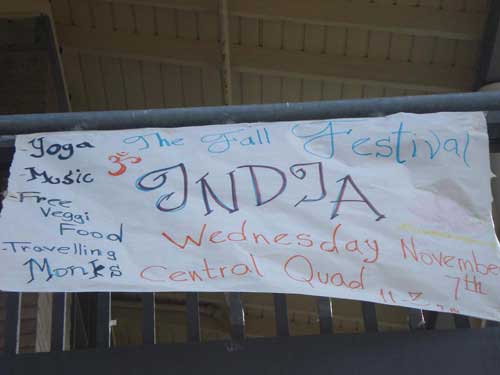 - Yoga
- Music
- Free
Veggi
Food
- Travelling
Monks
The Fall Festival
ॐ INDIA
Wednesday November
Central Quad 7th